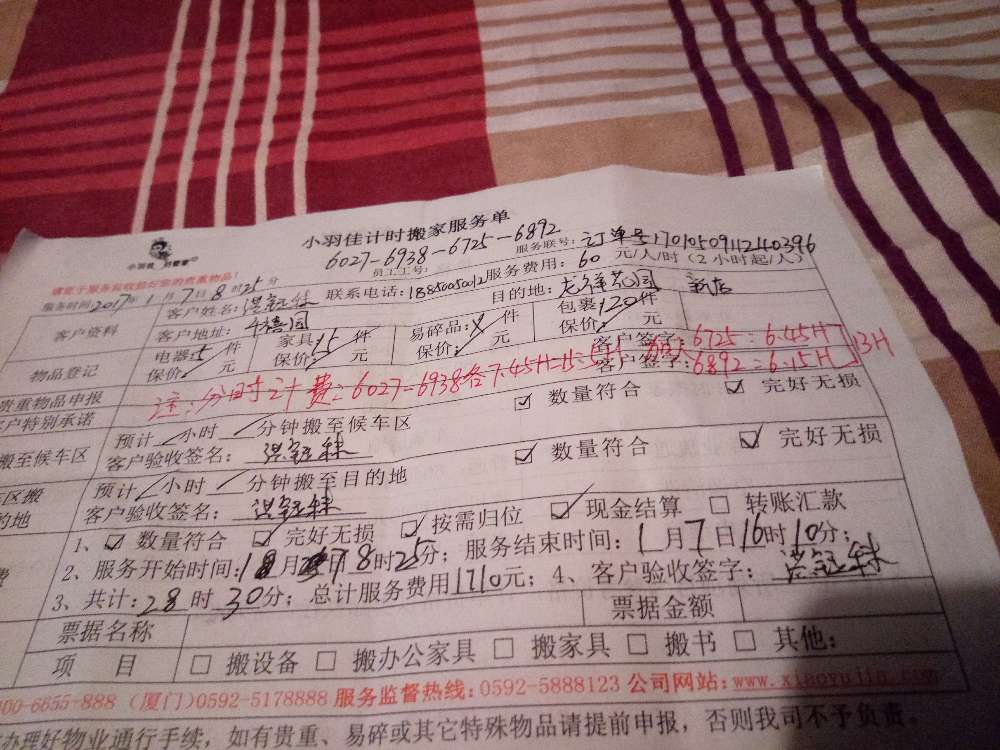 小羽佳计时搬家服务单
6027-6938-6725-6892
小羽佳 好管家
员工工号:
服务联号: 订单号17010509112440396
请更于服务前收拾好您的贵重物品!
服务时间2017年1月7日8时25分
联系电话:18850050012
服务费用: 60 元/人/时(2小时起/人)
客户资料
客户姓名:
客户地址:
目的地:
新店
物品登记
电器:5件 家具:15件 易碎品:4件 包裹120件
保价: 元 保价: 元 保价: 元 保价: 元
贵重物品申报
客户签字:
注:分时计费:6027-6938各7.45H
6725=6.45H
客户特别承诺
客户签字:
6892=6.15H
13H
搬至候车区
预计 小时 分钟搬至候车区 ☑ 数量符合 ☑ 完好无损
客户验收签名:
预计 小时 分钟搬至目的地 ☑ 数量符合 ☑ 完好无损
客户验收签名:
1、☑ 数量符合 ☑ 完好无损 ☑ 按需归位 ☑ 现金结算 □ 转账汇款
2、服务开始时间: 8时25分; 服务结束时间:1月7日16时10分;
3、共计:28时30分; 总计服务费用1710元; 4、客户验收签字:
票据名称 票据金额
项 目 □ 搬设备 □ 搬办公家具 □ 搬家具 □ 搬书 □ 其他:
00-6655-888 (厦门)0592-5178888 服务监督热线:0592-5888123 公司网站:www.xiaoyujia.com
办理好物业通行手续, 如有贵重、易碎或其它特殊物品请提前申报, 否则我司不予负责。